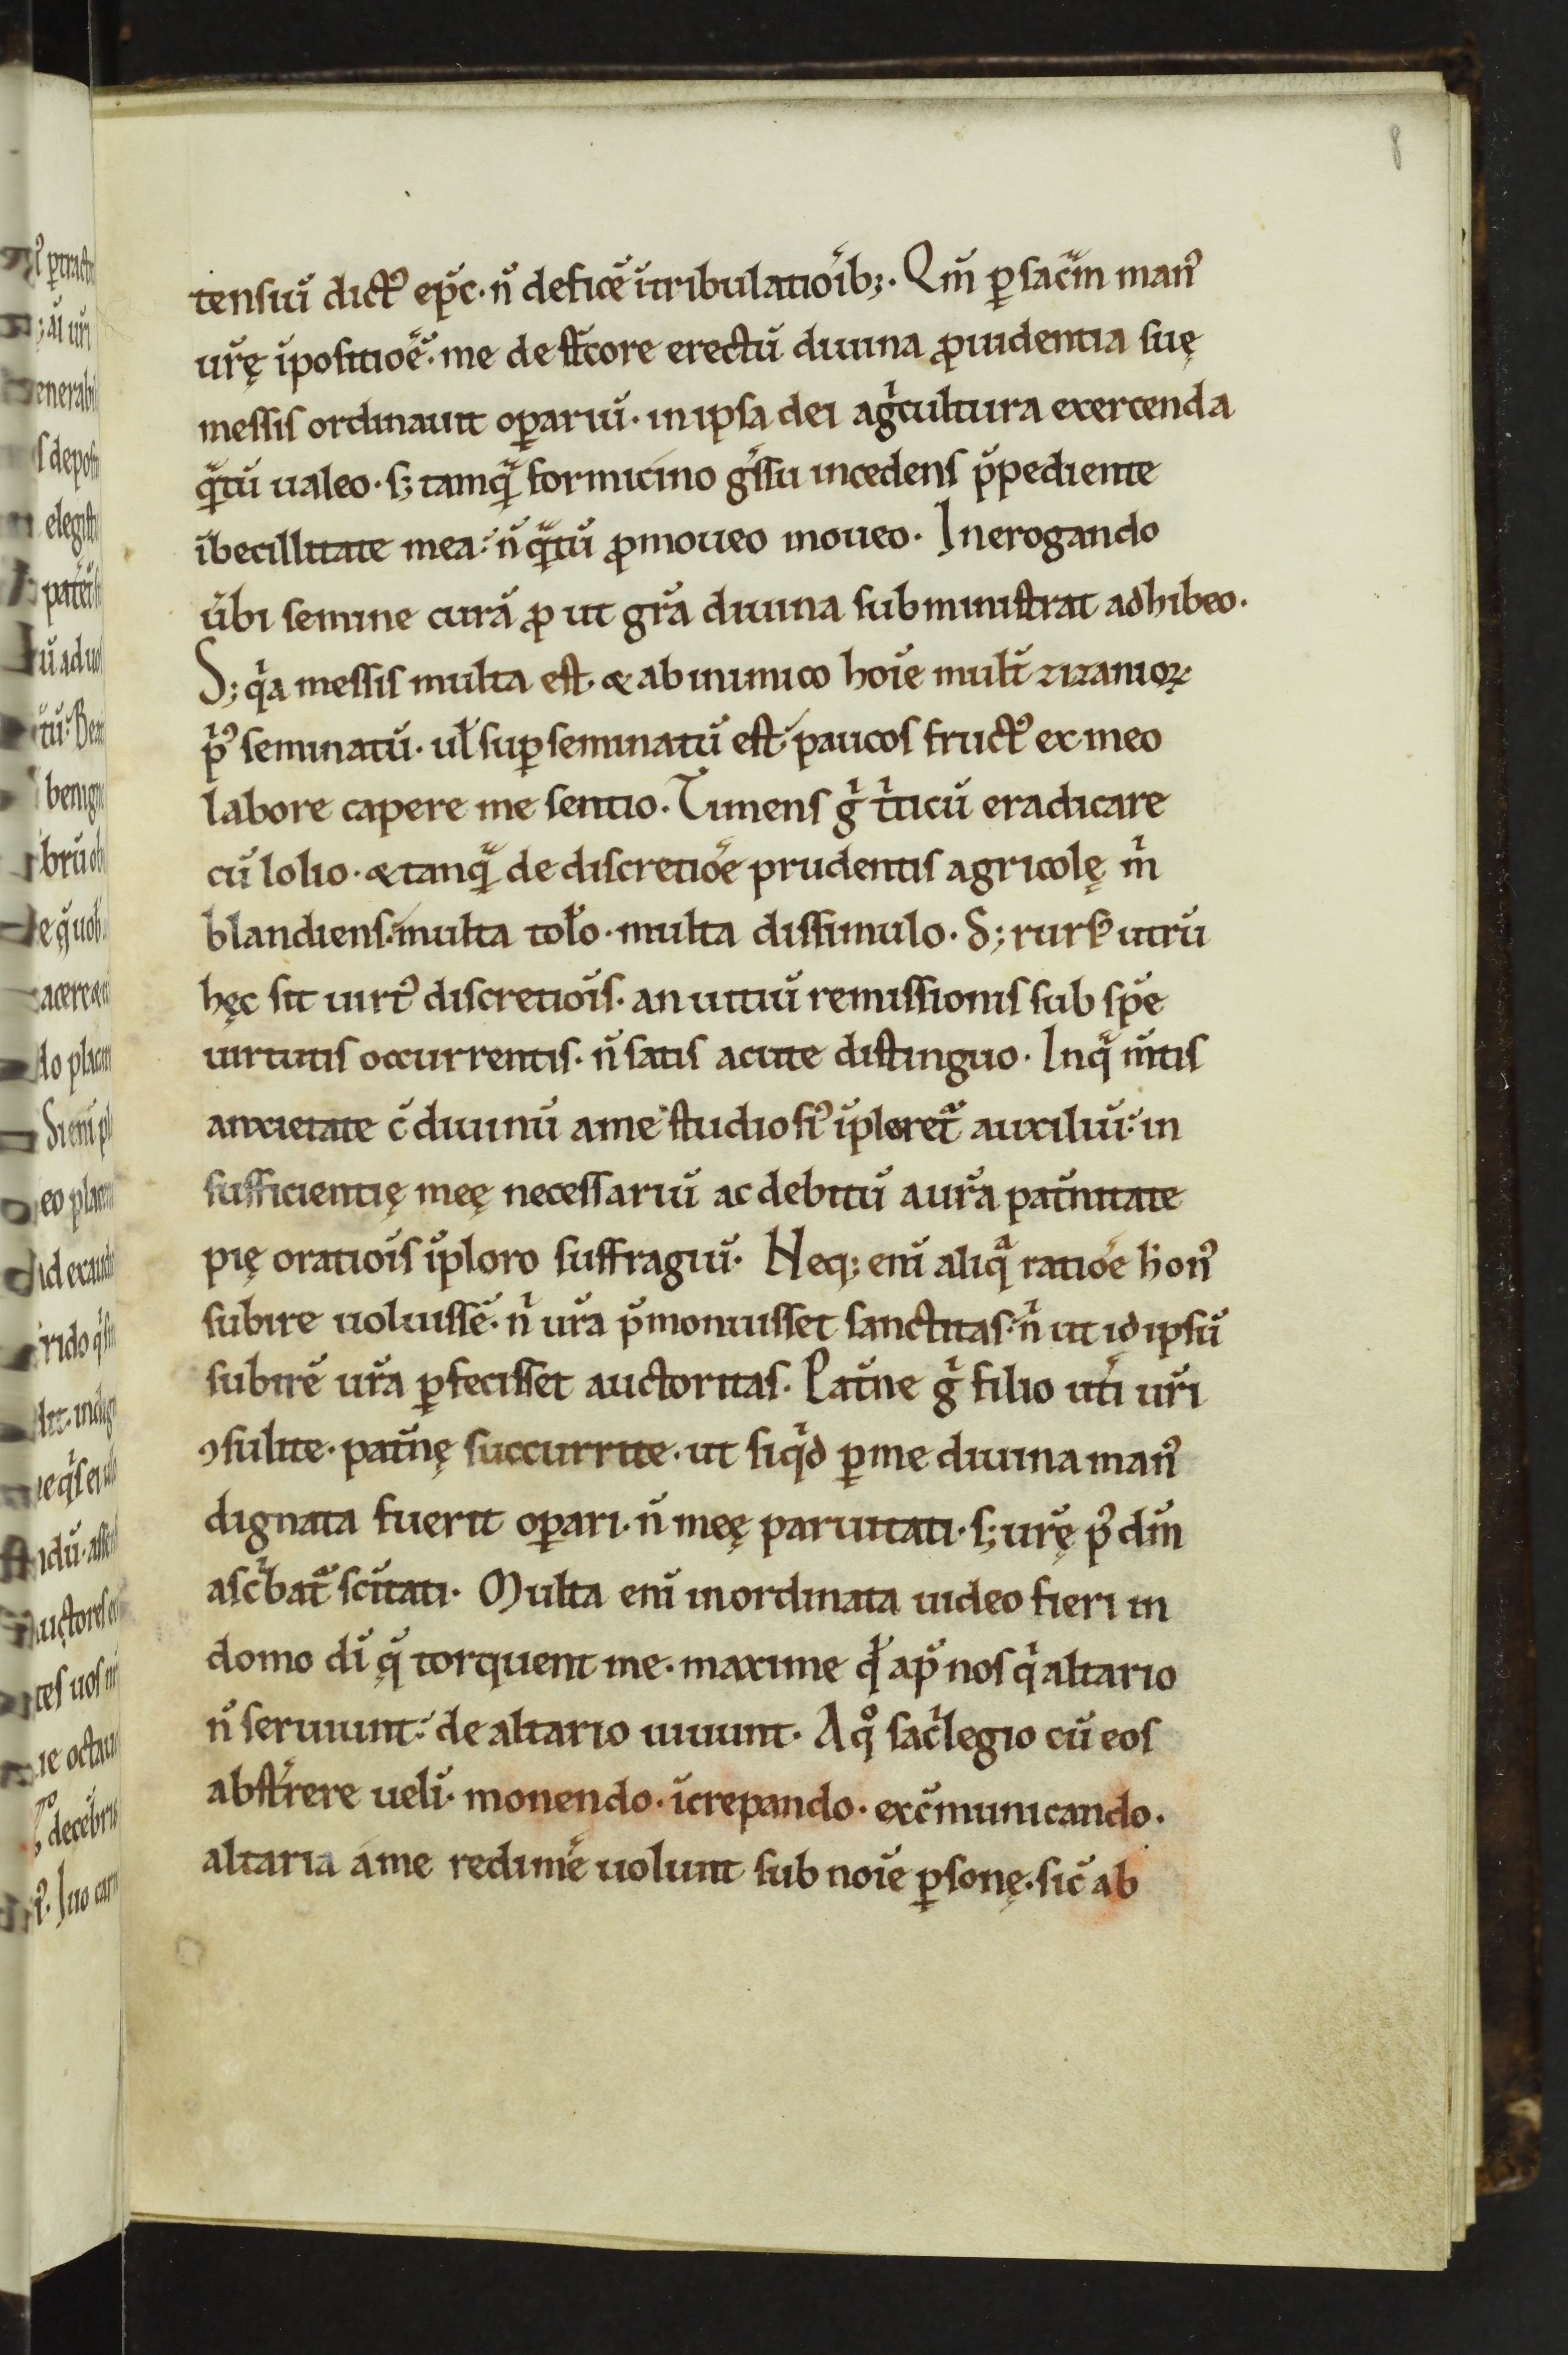 8
tensiū dictꝰ ep̄c· n̄ deficē ītribulatiōib;· Qm̄ ꝑ sac̄m manꝰ
ur̄ę īpositiōē· me de st̄core erectū diuina ꝓuidentia suę
messis ordinauit oꝑariū· in ipsa dei agͥcultura exercenda
qᷓtū ualeo· s; tamqᷓ formicino gͤssu incedens p̄pediente
ībecillitate mea· n̄ qᷓtū ꝓmoueo moueo· In erogando
ūbi semine curā ꝓ ut gr̄a diuina subministrat adhibeo·
S; qͥa messis multa est· & ab inimico hoīe mult̄ zizanioꝝ
pͥꝰ seminatū· ul̄ suꝑseminatū est· paucos fructꝰ ex meo
labore capere me sentio· Timens gͥ tͥticū eradicare
cū lolio· & tanqᷓ de discretiōe prudentis agricolę mͥ
blandiens· multa tol̄o· multa dissimulo· S; rursꝰ utrū
hęc sit uirtꝰ discretiōis· an uitiū remissionis sub sp̄e
uirtutis occurrentis· n̄ satis acute distinguo· In qᷓ m̄tis
anxietate c̄ diuinū a me studiosiꝰ īploret᷑ auxiliū· in
sufficientię meę necessariū ac debitū a ur̄a pat̄nitate
pię oratiōis īploro suffragiū· Neq; eni aliqᷓ ratiōe honꝰ
subire uoluissē· nͥ ur̄a p̄monuisset sanctitas· nͥ ut id ipsū
subirē ur̄a ꝑfecisset auctoritas· Pat̄ne gͥ filio ut̄i ur̄i
ꝯsulite· pat̄nę succurrite· ut siqͥd ꝑ me diuina manꝰ
dignata fuerit oꝑari· n̄ meę paruitati· s; ur̄ę pꝰ dm̄
ascͥbat᷑ sc̄itati· Multa eni inordinata uideo fieri in
domo dī q̄ torquent me· maxime qđ ap̄ nos qͥ altario
n̄ seruiunt· de altario uiuunt· A qͦ sacͥlegio cū eos
abstͤrere uelī· monendo· īcrepando· exc̄municando·
altaria a me redimē uolunt sub noīe ꝑsonę· sic̄ ab